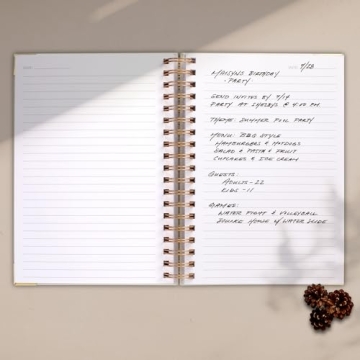 7/28
Maisyns Birthday
- Party
Send invites by 7/14
Party at Shelbys @ 4:00 pm
Theme: Summer Pool Party
Menu: BBQ Style
Hamburgers & Hotdogs
Salad & Pasta & Fruit
Cupcakes & Ice Cream
Guests:
Adults - 22
Kids - 11
Games:
Water Fight & Volleyball
Bounce House w/ Water Slide